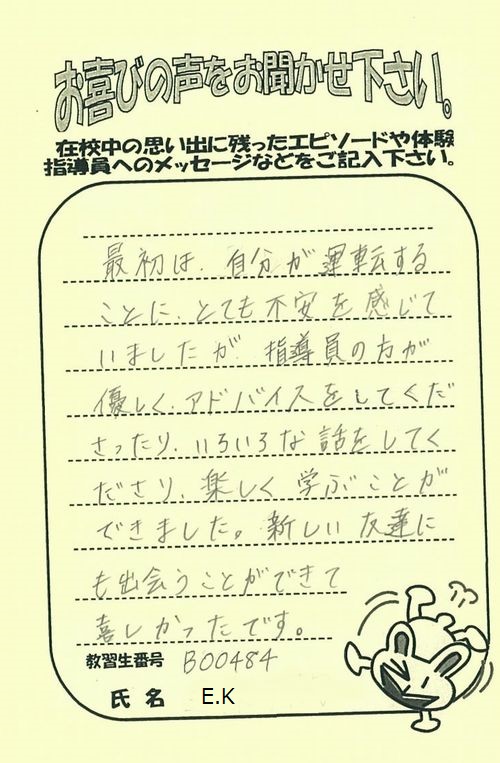 お喜びの声をお聞かせ下さい。
在校中の思い出に残ったエピソードや体験
指導員へのメッセージなどをご記入下さい。
最初は、自分が運転する
ことに、とても不安を感じて
いましたが、指導員の方が
優しく、アドバイスをしてくだ
さったり、いろいろな話をしてく
ださり、楽しく学ぶことが
できました。新しい友達に
も出会うことができて
喜しかったです。
教習生番号 B00484
氏名 E.K